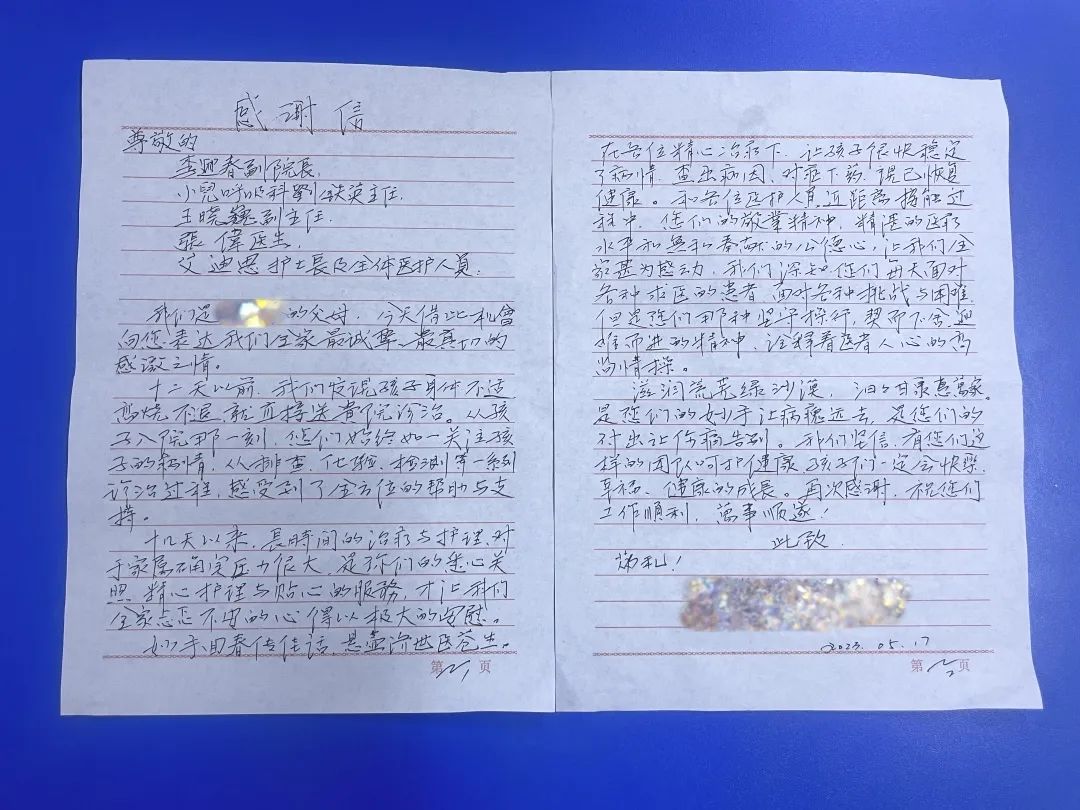 感谢信
尊敬的
李興春副院長、
小兒呼吸科劉铁英主任、
王晓巍副主任、
張偉医生、
艾迪思护士長及全体医护人員：
我们是的父母，今天借此机會
向您表达我们全家最诚挚、最真切的
感激之情。
十二天以前，我们发现孩子身体不适
高烧不退就直接送貴院诊治。从孩
子入院那一刻，您们始终如一关注孩
子的病情，从排查、化验、检测等一系列
诊治过程，感受到了全方位的帮助与支
持。
十几天以来，長時间的治疗与护理，对
于家属确实压力很大，是你们的悉心关
照，精心护理与贴心的服務，才让我们
全家忐忑不安的心得以极大的安慰。
妙手回春传佳话，悬壶济世医苍生。
第1页
在各位精心治疗下，让孩子很快稳定
了病情，查出病因，对症下药，現已恢复
健康。和各位医护人員近距离接触过
程中，您们的敬業精神，精湛的医疗
水平和無私奉献的公德心，让我们全
家甚为感动，我们深知您们每天面对
各种求医的患者，面对各种挑战与困难，
但是您们那种坚守操行，契而不舍，迎
难而进的精神，诠释着医者人心的高
尚情操。
滋润流芳绿沙漠，汩汩甘泉惠萬家。
是您们的妙手让病魔远去，是您们的
付出让伤病告别。我们坚信，有您们这
样的团队呵护健康，孩子们一定会快樂、
幸福、健康的成長。再次感谢，祝您们
工作順利，萬事順遂！
此致
敬礼！
2023.05.17
第2页